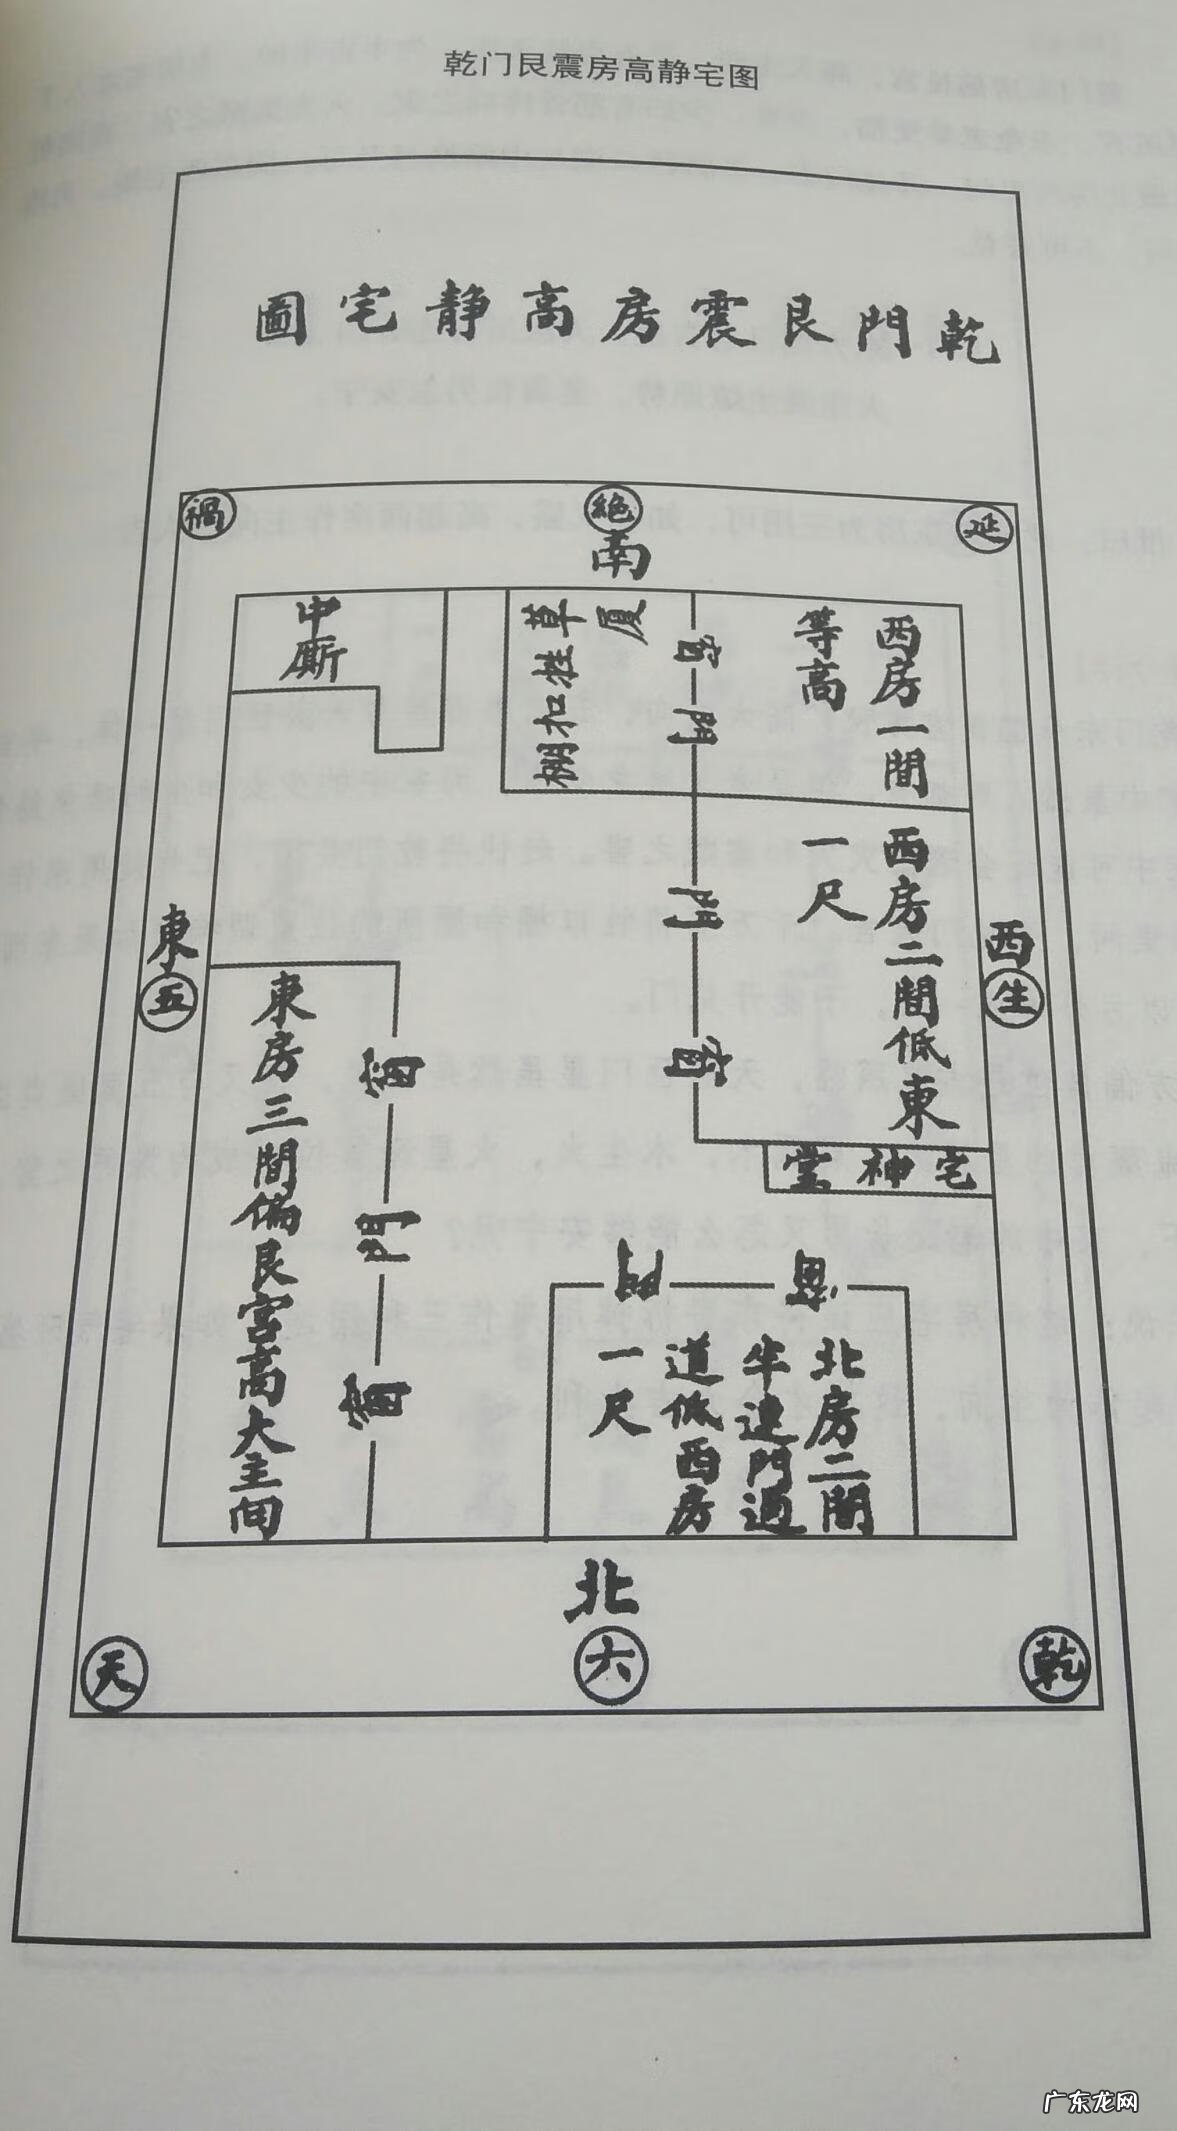 乾门艮震房高静宅图
乾門艮震房高静宅圖
禍
絶
延
南
中厠
草厦
棚和牲
窗
門
西房一間
等高
門
窗
西房二間低東
一尺
東
五
西
生
東房三間偏艮宮高大主間
窗
門
窗
宅神堂
門
窗
北房二間
半連門過
道低西房
一尺
北
天
六
乾
广东龙网